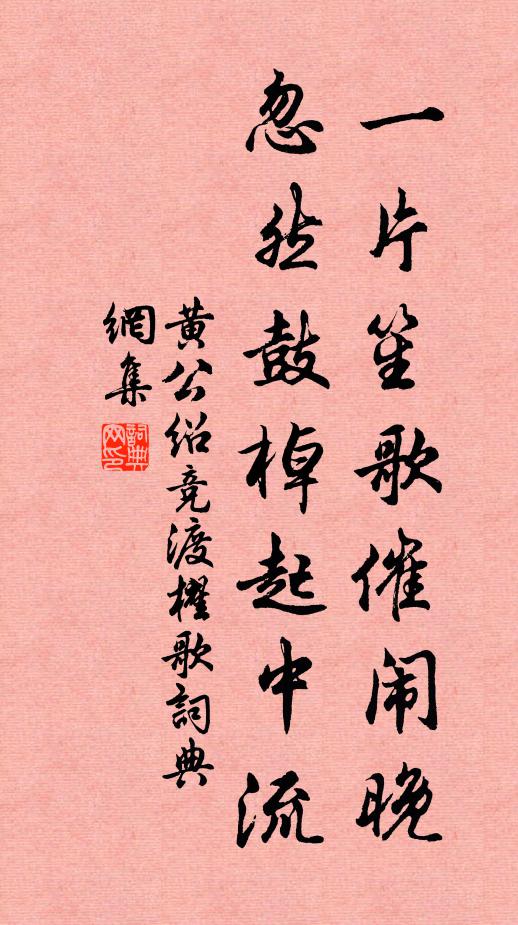 一片笙歌催闹晚
忽然鼓棹起中流
黄公绍竞渡櫂歌詞典
網集
詞典
网印